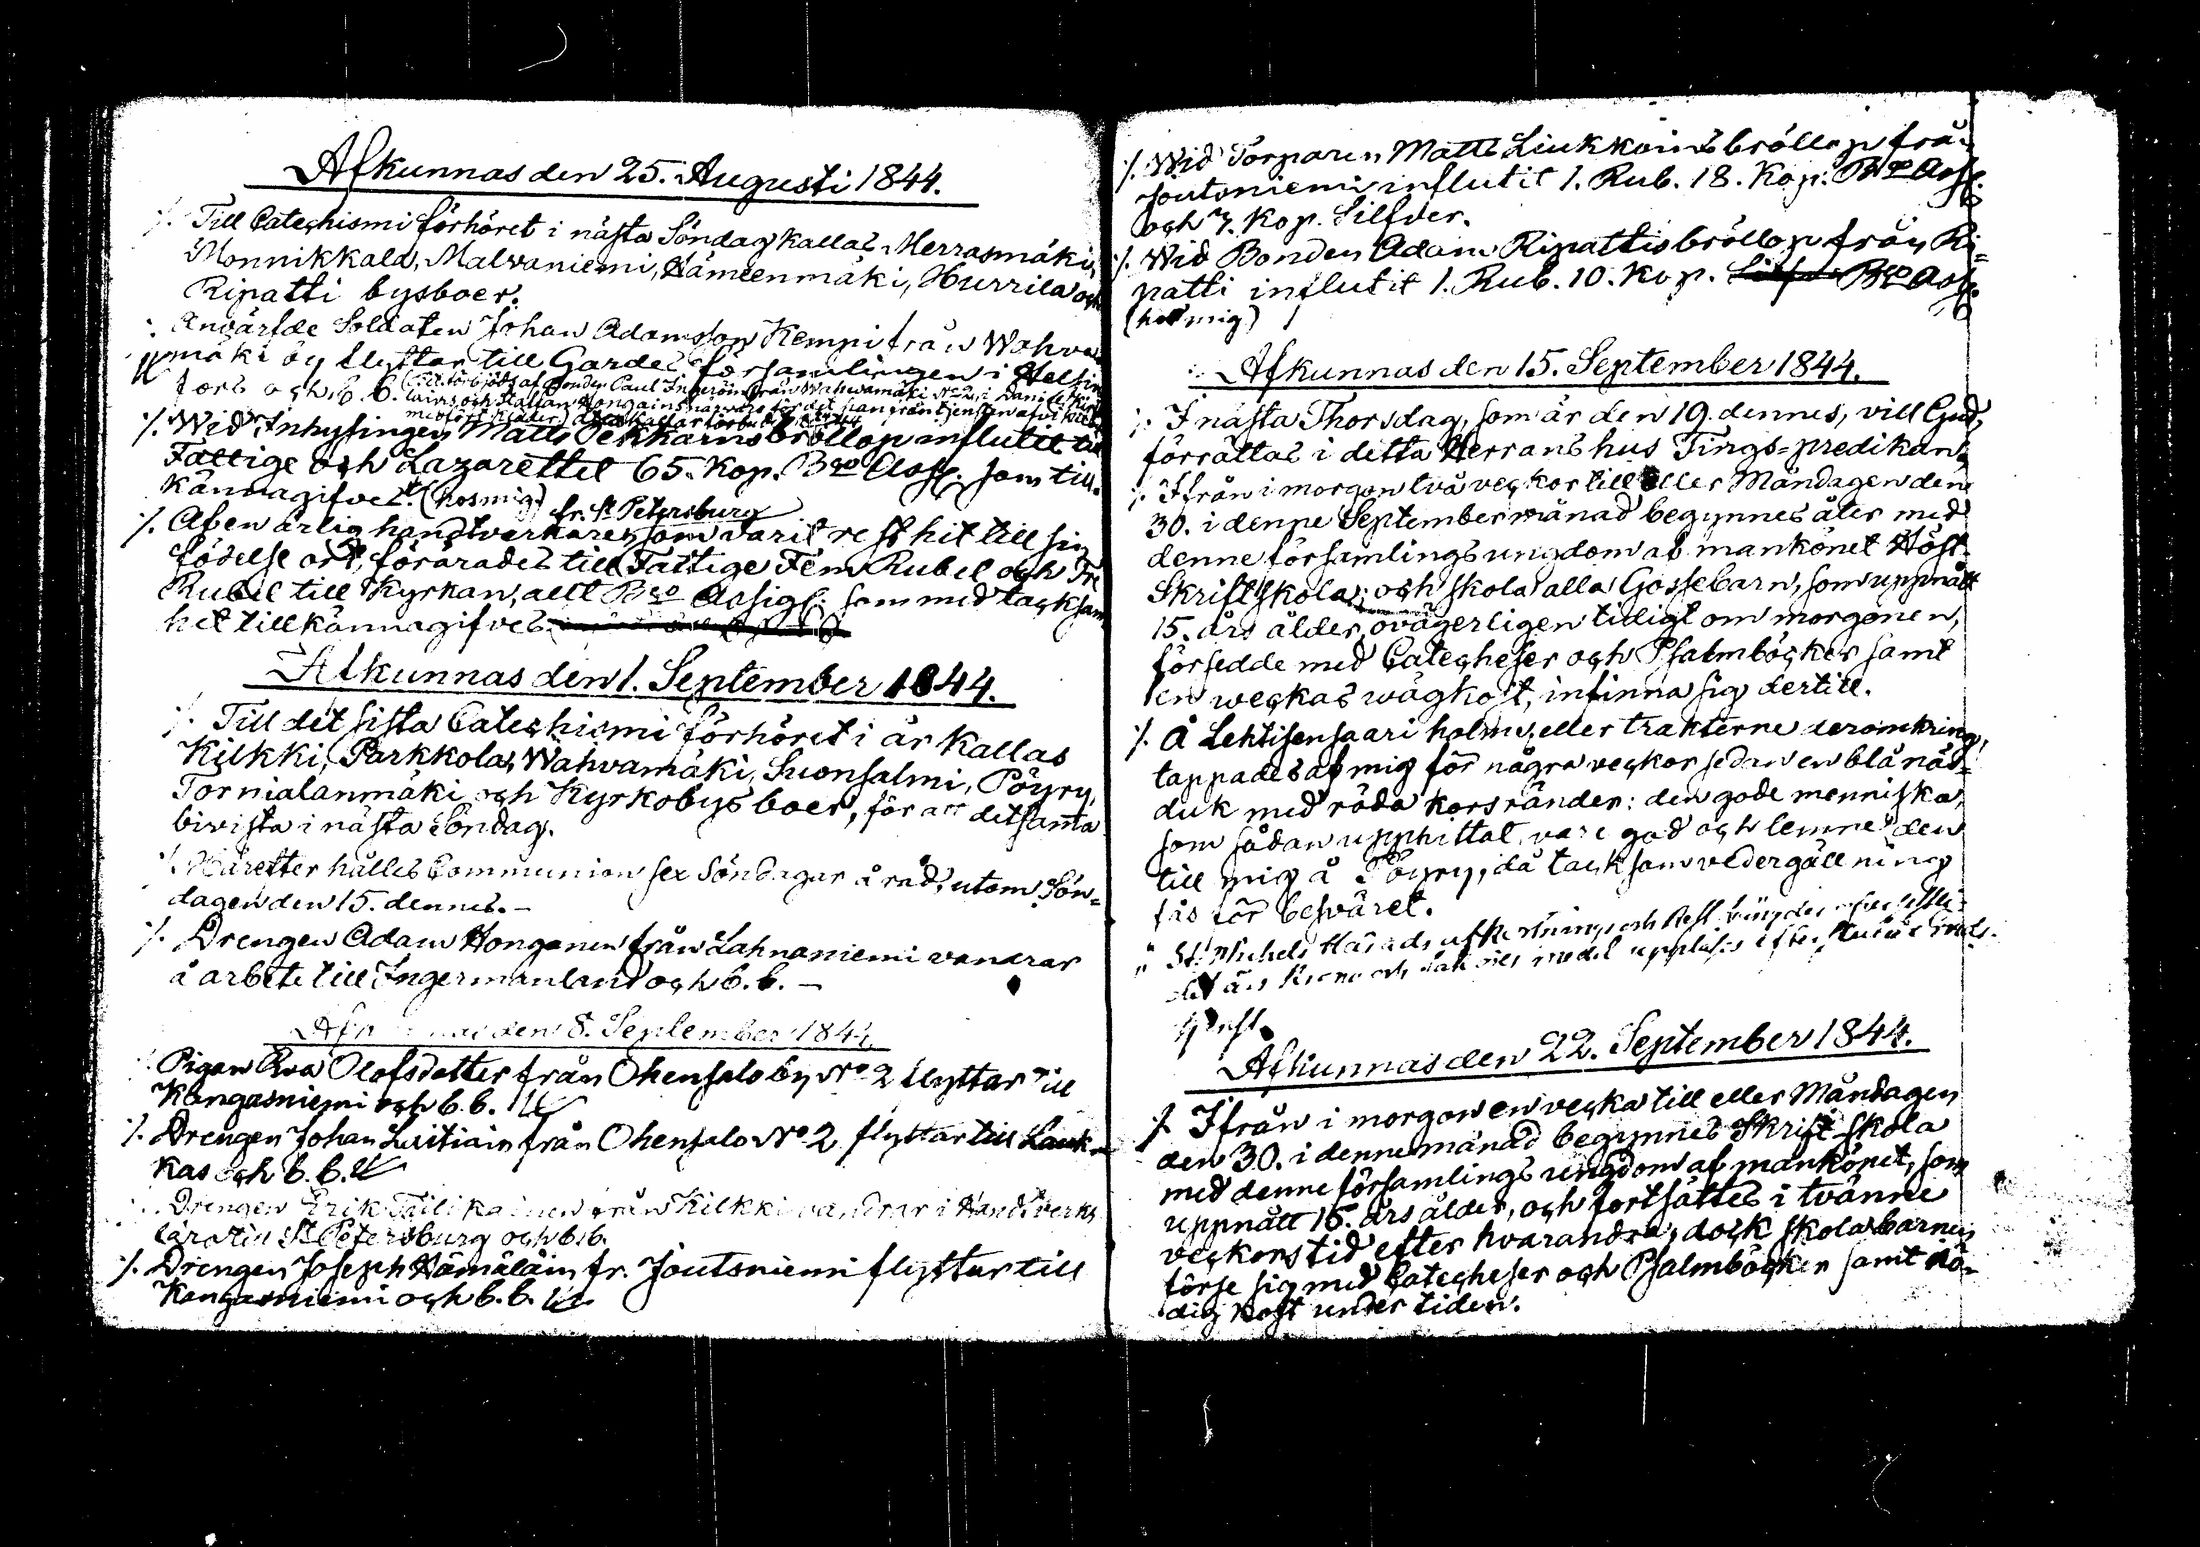 Afkunnas den 25. Augusti 1844.
⁒ Till Catechismi förhöret i nästa Söndag kallas Herrasmäki,
Monnikkala, Malvaniemi, Hämeenmäki, Hurrila och
Ripatti bysboer.
⁒ Anvärfde Soldaten Johan Adamsson Kempi från Wahva
mäki by flyttar till Gardes församlingen i Helsing
fors och b. b.
⁒ Wid Inhysingen Matts Pekkarins bröllop influtit till
Fattige och Lazarettet 65. Kop. Bco Assg. som till-
kännagifves. (hos mig)
fr. St Petersburg
⁒ Af en ärlig handtverkare, som varit rest hit till sin
födelse ort, förärades till Fattige Fem Rubel och Tre
Rubel till Kyrkan, allt Bco Assign: som med tacksam
het tillkännagifves
Afkunnas den 1. September 1844.
⁒ Till det sista Catechismi förhöret i år kallas
Kilkki, Parkkola, Wahvamäki, Suonsalmi, Pöyry,
Tornialanmäki och Kyrkobys boer, för att detsamma
bivista i nästa Söndag.
⁒ Härefter hålles Communion sex Söndagar å rad, utom Sön-
dagen den 15. dennes. –
⁒ Drengen Adam Honganen från Lahnaniemi vandrar
å arbete till Ingermanland och b. b. –
Afkunnas den 8. September 1844.
⁒ Pigan Eva Olofsdotter från Ohensalo by No 2 flyttar till
Kangasniemi och b. b.
⁒ Drengen Johan Luitiain från Ohensalo No 2 flyttar till Lauk-
kas och b. b.
⁒ Drengen Erik Tiilikainen från Kilkki vandrar i Handtverks
lära till St Petersburg och b. b.
⁒ Drengen Joseph Hämäläin fr. Joutsniemi flyttar till
Kangasniemi och b. b.
⁒ Wid Torparen Matts Liukkoins bröllop från
Joutsniemi influtit 1. Rub. 18. Kop. Bco Assg.
och 7. Kop. Silfver.
⁒ Wid Bonden Adam Ripattis bröllop från Ri-
patti influtit 1. Rub. 10. Kop. Silfver Bco Assg.
(hos mig)
Afkunnas den 15. September 1844.
⁒ I nästa Thorsdag, som är den 19. dennes, vill Gud,
förrättas i detta Herrans hus Tings-predikan.
⁒ Ifrån i morgon två veckor till eller Måndagen den
30. i denne September månad begynnes åter med
denne församlings ungdom af mankönet Höst
Skriftskola; och skola alla Gossebarn, som uppnått
15. års ålder, ovägerligen tidigt om morgonen,
försedde med Catecheser och Psalmböcker samt
en weckas wägkost, infinna sig dertill.
⁒ Å Lehtisensaari holme, eller trakterne deromkring,
tappades af mig för några veckor sedan en blå näs-
duk med röda korsränder: den gode menniska,
som sådan upphittat, vare god och lemne den
till mig å Pöyry, då tacksam vedergällning
fås för besväret.
St Michels Härads
Afkunnas den 22. September 1844.
⁒ Ifrån i morgon en vecka till eller Måndagen
den 30. i denne månad begynnes Skrift-skola
med denne församlings ungdom af mankönet, som
uppnått 15. års ålder, och fortsättes i tvänne
veckors tid efter hvarandra; dock skola barnen
förse sig med Catecheser och Psalmböcker samt nö-
dig kost under tiden.